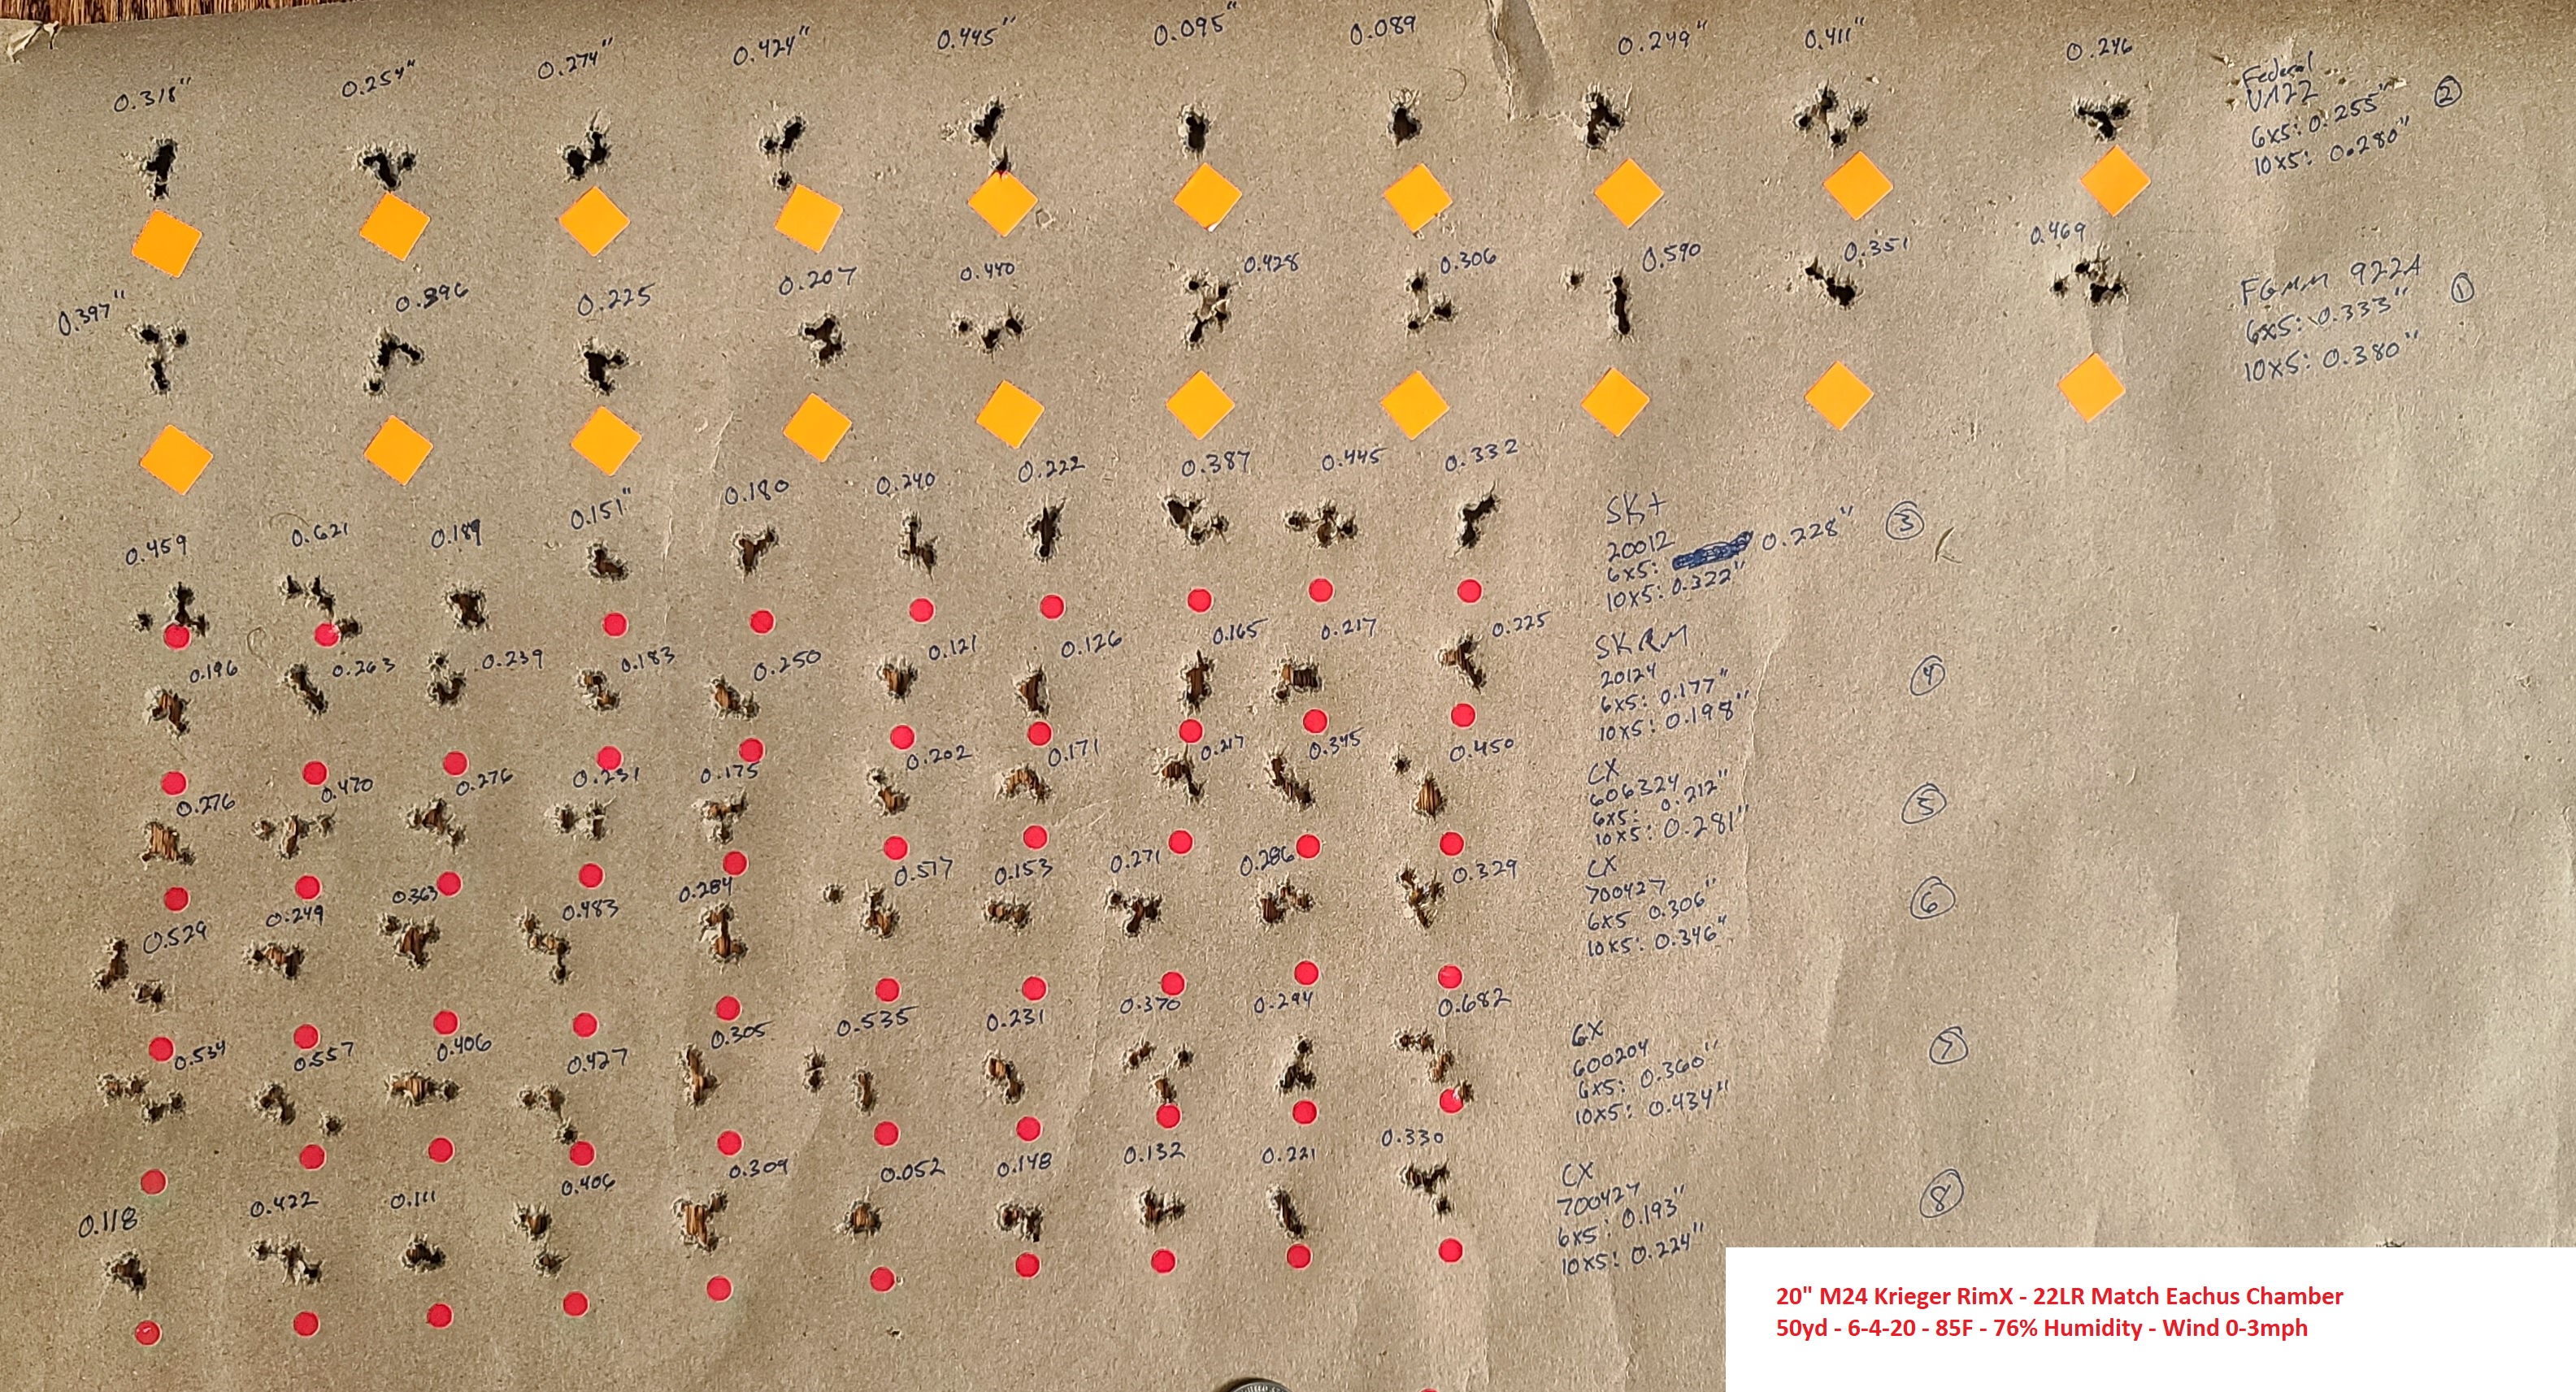 0.318" 0.254" 0.274" 0.424" 0.445" 0.095" 0.089 0.249" 0.411" 0.246
Federal
UM22
6x5: 0.255" ②
10x5: 0.280"
0.397" 0.396 0.225 0.207 0.440 0.428 0.306 0.590 0.351 0.469
FGMM 922A
6x5: 0.333" ①
10x5: 0.380"
0.459 0.621 0.189 0.151" 0.180 0.240 0.222 0.387 0.445 0.332
SK+
20012
6x5: 0.228" ③
10x5: 0.322"
0.196 0.263 0.239 0.183 0.250 0.121 0.126 0.165 0.217 0.225
SKRM
20124
6x5: 0.177" ④
10x5: 0.198"
0.276 0.470 0.276 0.231 0.175 0.202 0.171 0.217 0.345 0.450
CX
606324
6x5: 0.212" ⑤
10x5: 0.281"
0.529 0.249 0.363 0.483 0.284 0.517 0.153 0.271 0.286 0.329
CX
700427
6x5 0.306" ⑥
10x5: 0.346"
0.534 0.557 0.406 0.427 0.305 0.535 0.231 0.370 0.294 0.682
CX
600204
6x5: 0.360" ⑦
10x5: 0.434"
0.118 0.422 0.111 0.406 0.309 0.052 0.148 0.132 0.221 0.330
CX
700427
6x5: 0.193" ⑧
10x5: 0.224"
20" M24 Krieger RimX - 22LR Match Eachus Chamber
50yd - 6-4-20 - 85F - 76% Humidity - Wind 0-3mph